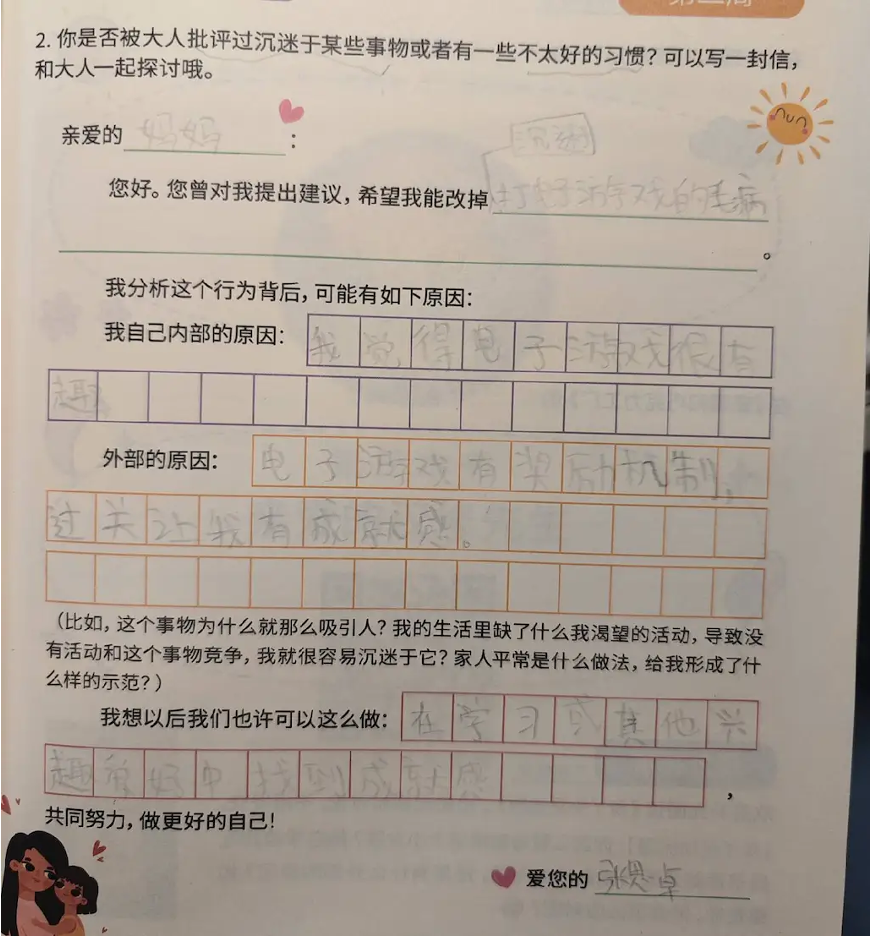 2. 你是否被大人批评过沉迷于某些事物或者有一些不太好的习惯？可以写一封信，
和大人一起探讨哦。
亲爱的 妈妈：
沉迷
您好。您曾对我提出建议，希望我能改掉 打电子游戏的毛病
。
我分析这个行为背后，可能有如下原因：
我自己内部的原因：我觉得电子游戏很有
趣
外部的原因：电子游戏有奖励机制，
过关让我有成就感。
（比如，这个事物为什么就那么吸引人？我的生活里缺了什么我渴望的活动，导致没
有活动和这个事物竞争，我就很容易沉迷于它？家人平常是什么做法，给我形成了什
么样的示范？）
我想以后我们也许可以这么做：在学习或其他兴
趣爱好中找到成就感，
共同努力，做更好的自己！
爱您的 张